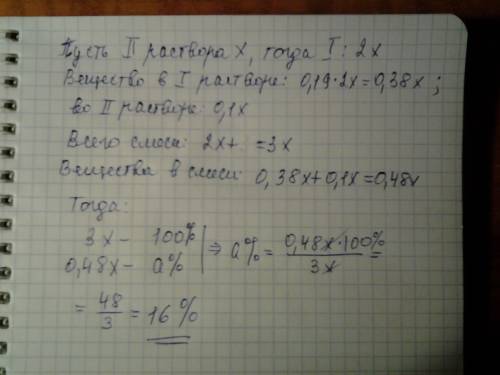 Пусть II раствора x, тогда I: 2x
Вещество в I растворе: 0,19·2x=0,38x ;
во II растворе: 0,1x
Всего смеси: 2x+ =3x
Вещества в смеси: 0,38x+0,1x=0,48x
Тогда:
3x - 100%
0,48x - a% ⇒ a% = 0,48x·100% / 3x =
= 48/3 = 16%